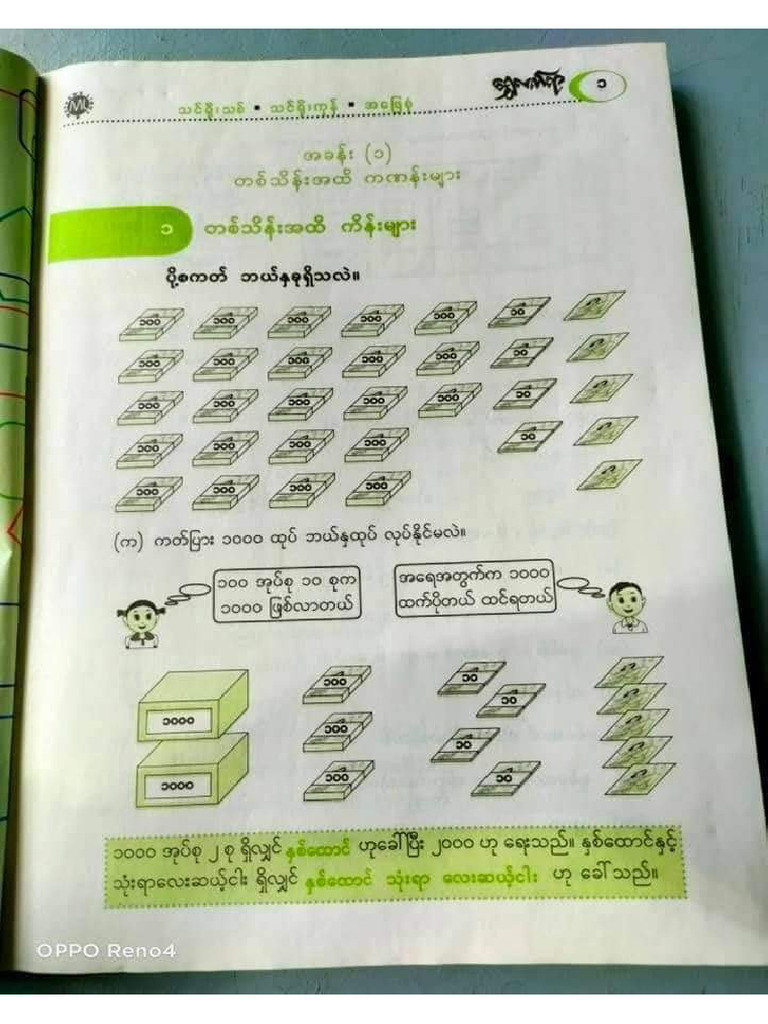 ML
သင်ရိုးသစ် • သင်ရိုးကုန် • အဖြေစုံ
ရွှေလက်ရာ
၁
အခန်း (၁)
တစ်သိန်းအထိ ကဏန်းများ
၁ တစ်သိန်းအထိ ကိန်းများ
ပို့စကတ် ဘယ်နှခုရှိသလဲ။
၁၀၀ ၁၀၀ ၁၀၀ ၁၀၀ ၁၀၀ ၁၀
၁၀၀ ၁၀၀ ၁၀၀ ၁၀၀ ၁၀၀ ၁၀
၁၀၀ ၁၀၀ ၁၀၀ ၁၀၀ ၁၀၀ ၁၀
၁၀၀ ၁၀၀ ၁၀၀ ၁၀၀ ၁၀
၁၀၀ ၁၀၀ ၁၀၀ ၁၀၀
(က) ကတ်ပြား ၁၀၀၀ ထုပ် ဘယ်နှထုပ် လုပ်နိုင်မလဲ။
၁၀၀ အုပ်စု ၁၀ စုက
၁၀၀၀ ဖြစ်လာတယ်
အရေအတွက်က ၁၀၀၀
ထက်ပိုတယ် ထင်ရတယ်
၁၀၀၀ ၁၀၀ ၁၀
၁၀
၁၀၀ ၁၀
၁၀၀၀ ၁၀၀ ၁၀
၁၀၀၀ အုပ်စု ၂ စု ရှိလျှင် နှစ်ထောင် ဟုခေါ်ပြီး ၂၀၀၀ ဟု ရေးသည်။ နှစ်ထောင်နှင့်
သုံးရာလေးဆယ့်ငါး ရှိလျှင် နှစ်ထောင် သုံးရာ လေးဆယ့်ငါး ဟု ခေါ်သည်။
OPPO Reno4